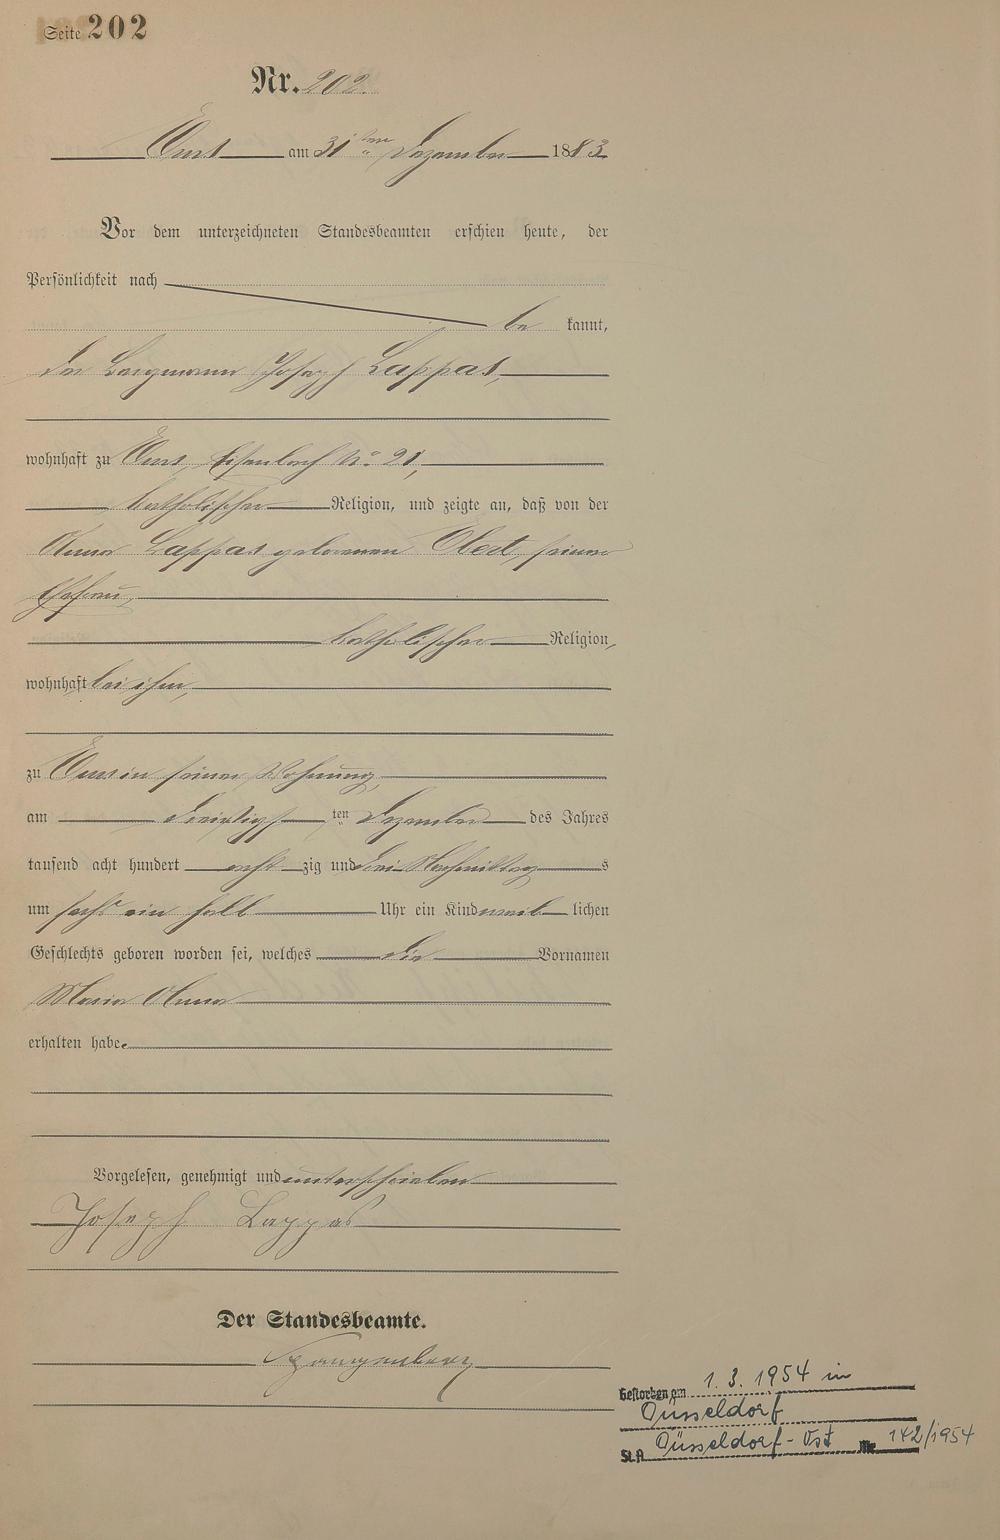 Seite 202
Nr. 202.
Ems am 31ten Dezember 1883
Vor dem unterzeichneten Standesbeamten erschien heute, der
Persönlichkeit nach
be kannt,
der Bergmann Joseph Lappas,
wohnhaft zu Ems, No 21,
katholischer Religion, und zeigte an, daß von der
Anna Lappas geborenen Obert, seiner
Ehefrau,
katholischer Religion,
wohnhaft bei ihm,
zu Ems in seiner Wohnung,
am dreißigsten Dezember des Jahres
tausend acht hundert acht zig und drei Nachmittags
um sechs ein halb Uhr ein Kind weib lichen
Geschlechts geboren worden sei, welches die Vornamen
Maria Anna
erhalten habe.
Vorgelesen, genehmigt und unterschrieben
Joseph Lappas
Der Standesbeamte.
Gestorben am 1.3.1954 in
Düsseldorf
St.A. Düsseldorf-Ost Nr. 142/1954